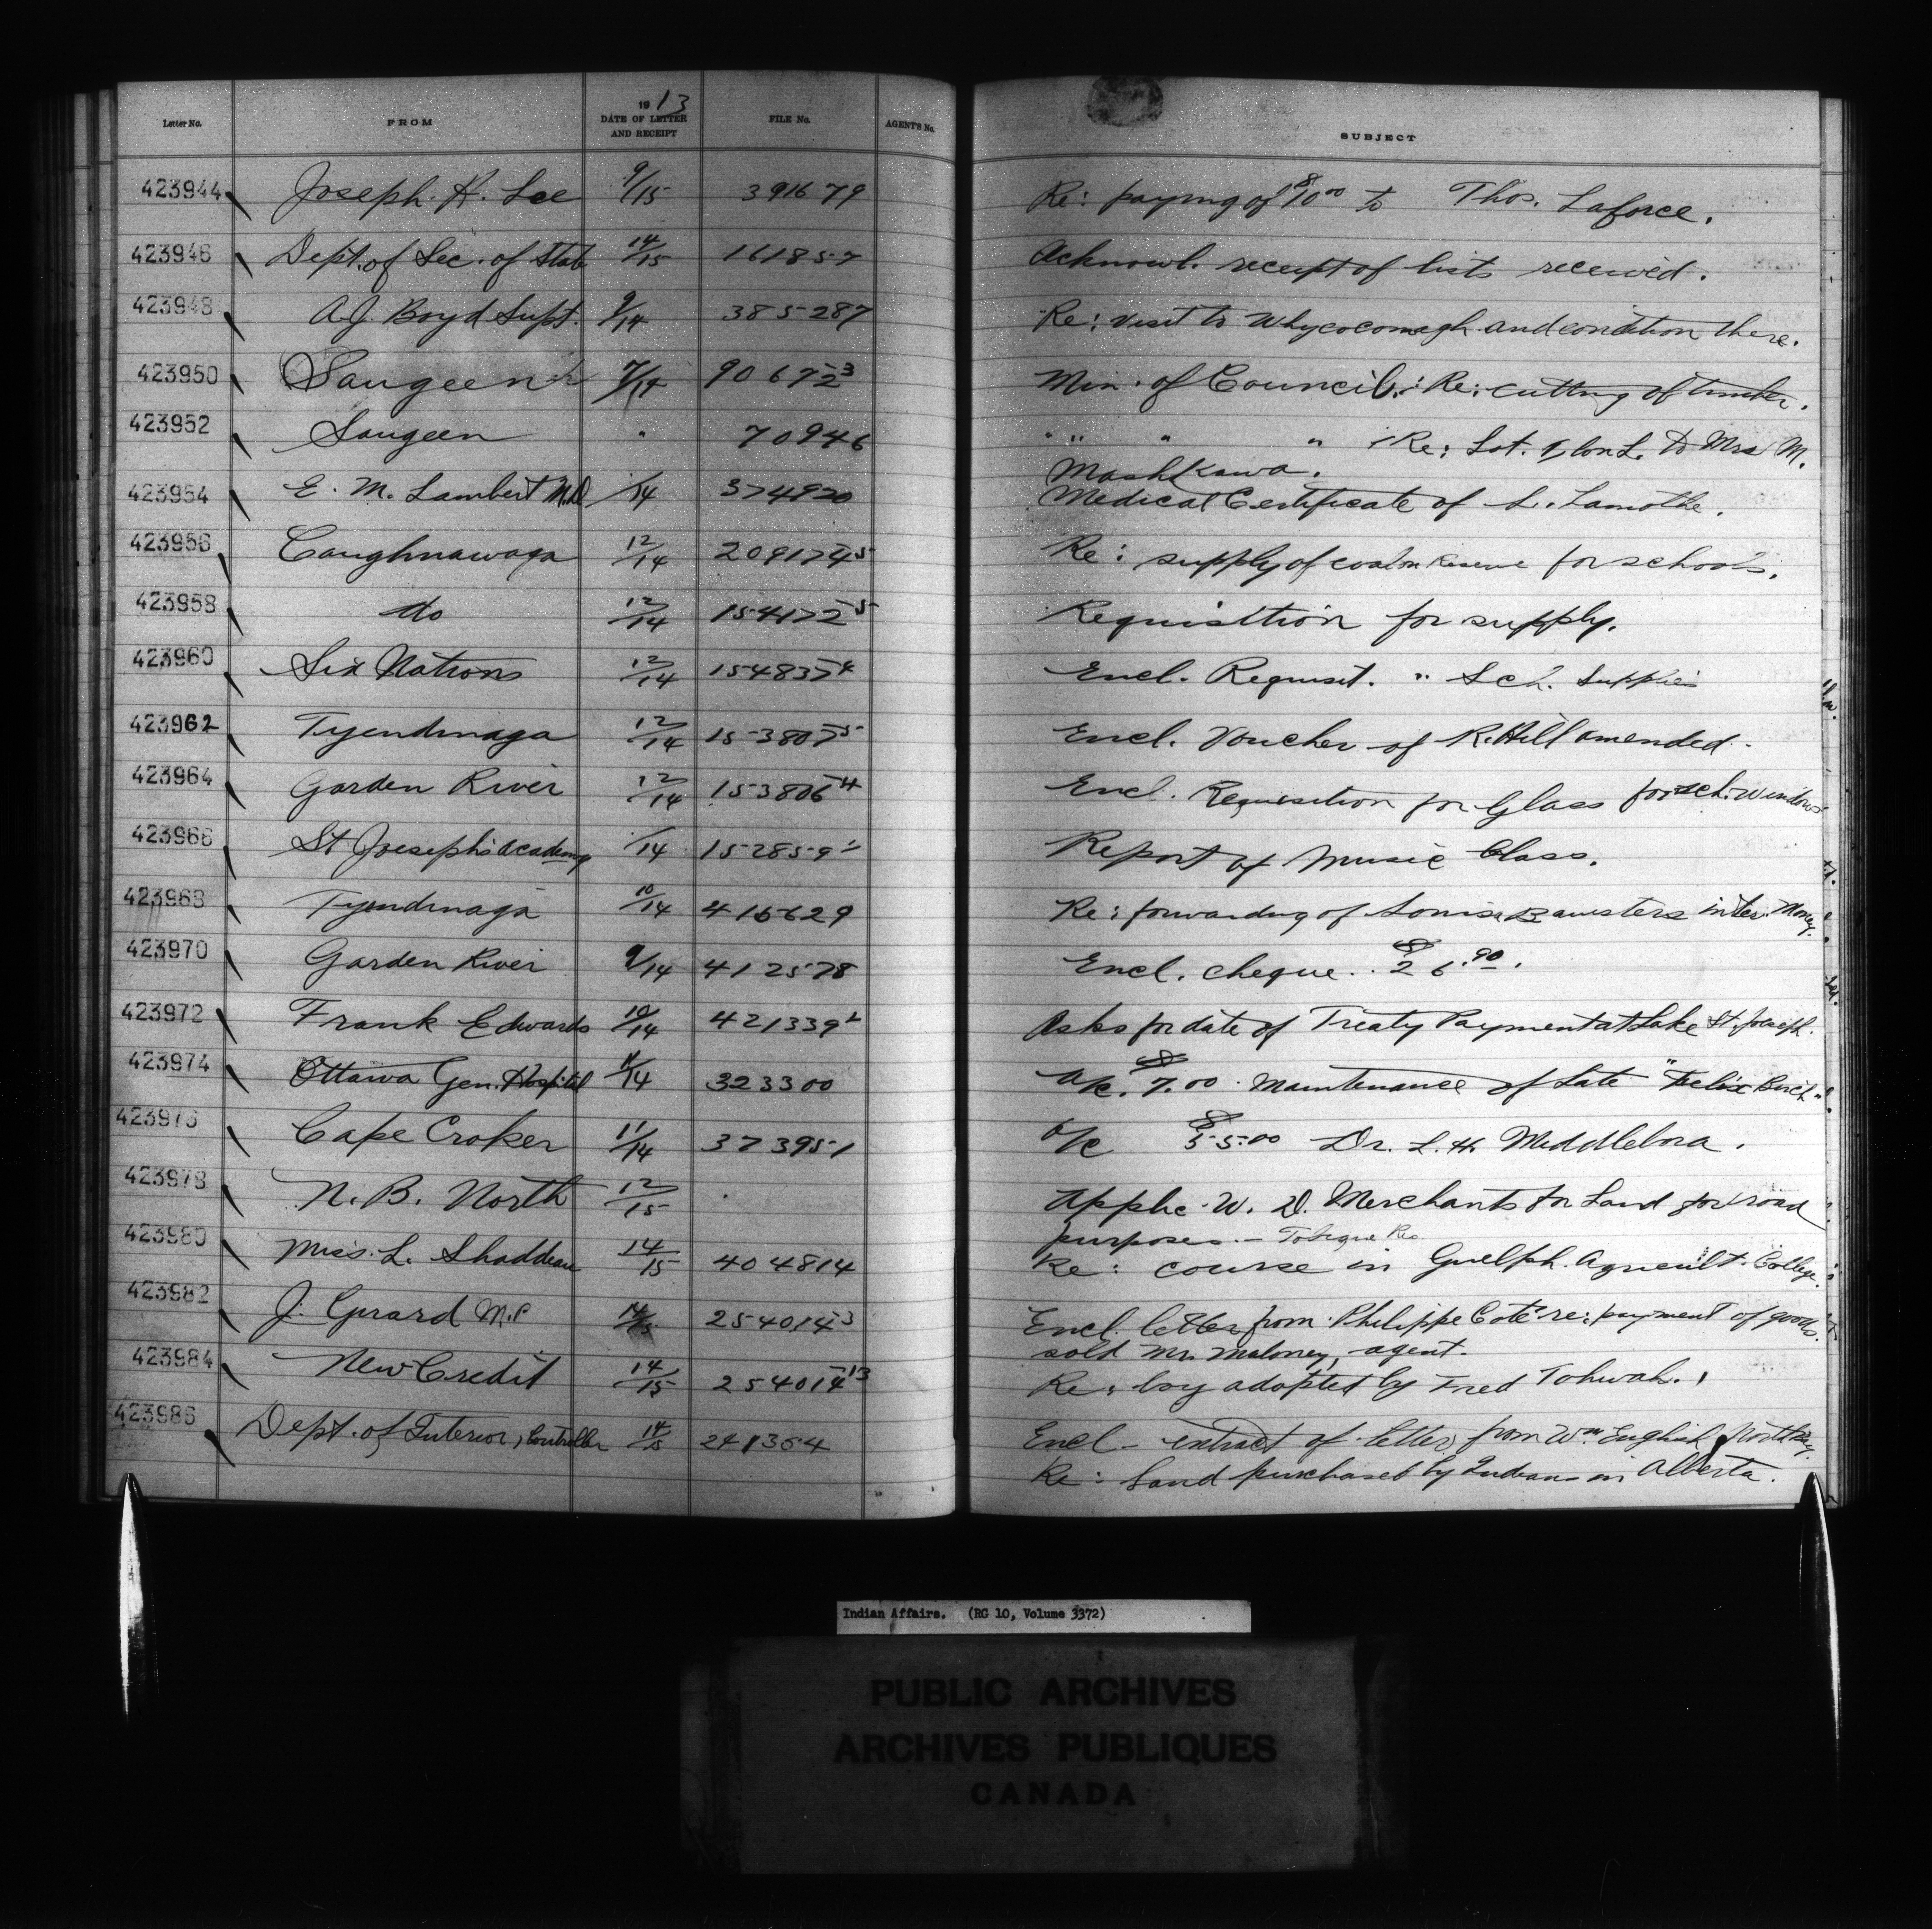 Letter No. FROM 1913 DATE OF LETTER AND RECEIPT FILE No. AGENT'S No. SUBJECT
423944 Joseph R. Lee 9/15 391679 Re: paying of $10.00 to Thos. Laforce.
423946 Dept. of Sec. of State 14/15 161857 Acknowl. receipt of lists received.
423948 A.J. Boyd Supt. 9/14 385287 Re: visit to Whycocomagh and condition there.
423950 Saugeen 7/14 90672-3 Min. of Council: Re: cutting of timber.
423952 Saugeen " 70946 " " " " Re: Lot. 1, Con L. to Mrs M.
Mashkawa.
423954 E. M. Lambert M.D. /14 374920 Medical Certificate of L. Lamothe.
423956 Caughnawaga 12/14 209174-5 Re: supply of coal on Reserve for schools.
423958 do 12/14 154172-5 Requisition for supply.
423960 Six Nations 12/14 154837-4 Encl. Requisit. " Sch. Supplies
423962 Tyendinaga 12/14 153807-5 Encl. Voucher of R. Hill amended.
423964 Garden River 12/14 153806-4 Encl. Requisition for Glass for sch. windows
423966 St Joseph's Academy /14 152859 Report of Music Class.
423968 Tyendinaga 10/14 415629 Re: forwarding of Louisa Bawsters inter. Money.
423970 Garden River 9/14 412578 Encl. cheque .. $26.90.
423972 Frank Edwards 10/14 421339 Asks for date of Treaty Payment at Lake St. Joseph.
423974 Ottawa Gen. Hospital 11/14 323300 a/c. $7.00. Maintenance of Late "Felix Buck"
423976 Cape Croker 11/14 373951 a/c $55.00 Dr. L. H. Middlebra.
423978 N. B. North 12/15 Applic. W. D. Merchants for Land for road
purposes. — Tobique Res
423980 Miss. L. Shaddeau 14/15 404814 Re: course in Guelph. Agricult. College.
423982 J. Girard M.P 14/15 254014-3 Encl. letter from Philippe Coté re: payment of goods.
sold Mr. Maloney, agent.
423984 New Credit 14/15 254014-13 Re: boy adopted by Fred Tohwah.
423986 Dept. of Interior, Controller 14/15 241364 Encl - extract of letter from Wm. English
Re: Land purchased by Indians in Alberta.
Indian Affairs. (RG 10, Volume 3372)
PUBLIC ARCHIVES
ARCHIVES PUBLIQUES
CANADA